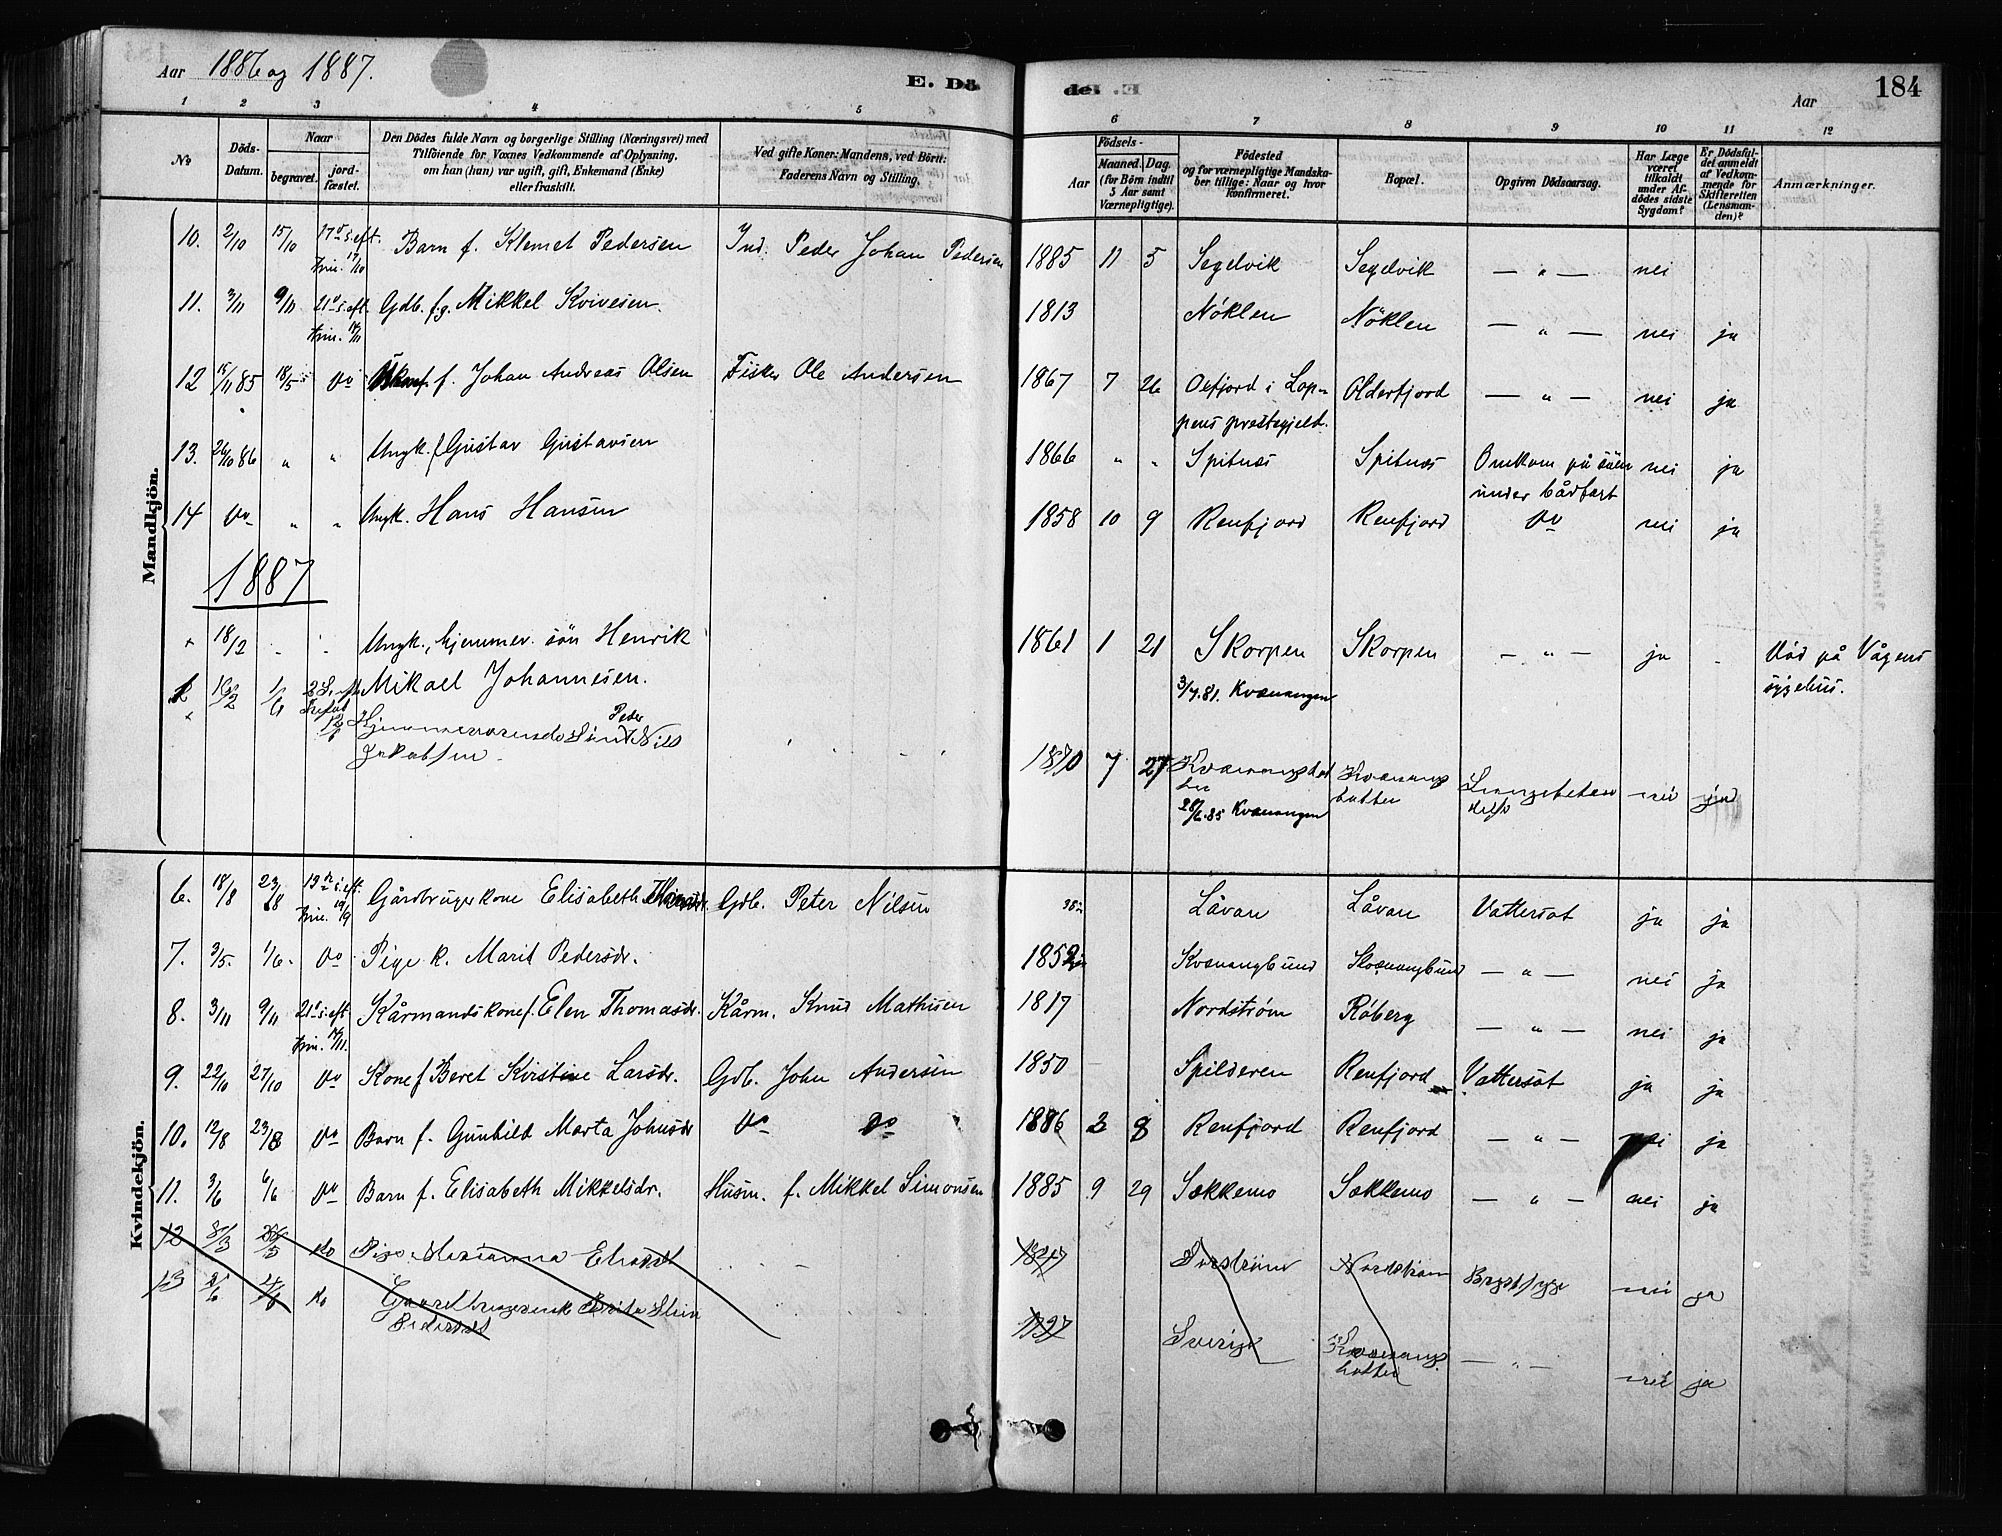 Aar 1886 og 1887.
E. Dö
de. E.
Aar
184
1 2 3 4 5 6 7 8 9 10 11 12
No
Döds-Datum.
Naar
begravet.
jord-fæstet.
Den Dödes fulde Navn og borgerlige Stilling (Næringsvei) med
Tilföiende for Voxnes Vedkommende af Oplysning,
om han (hun) var ugift, gift, Enkemand (Enke)
eller fraskilt.
Ved gifte Koner: Mandens, ved Börn:
Faderens Navn og Stilling.
Födsels-
Aar
Maaned. Dag.
(for Börn indtil
5 Aar samt
Værnepligtige).
Födested
og for værnepligtige Mandska-
ber tillige: Naar og hvor
konfirmeret.
Bopæl.
Opgiven Dödsaarsag.
Har Læge
været
tilkaldt
under Af-
dödes sidste
Sygdom?
Er Dödsfal-
det anmeldt
af Vedkom-
mende for
Skifteretten
(Lensman-
den)?
Anmærkninger.
Mandkjön.
10. 2/10 15/10 17 s. eft. Trin. 17/10 Barn f. Klemet Pedersen Ind. Peder Johan Pedersen 1885 11 5 Segelvik Segelvik — " — nei
11. 3/11 9/11 21 s. eft. Trin. 14/11 Gdb. f.g. Mikkel Kvivesen. 1813 Nöklen Nöklen — " — nei ja
12 15/11 85 18/5 Do f. Johan Andreas Olsen Fisker Ole Andersen 1867 7 26 Oefjord i Lop-
pens prestegjeld. Olderfjord — " — nei ja
13. 26/10 86 " " Ungk. f Gustav Gustavsen 1866 " " Spitnæs Spitnæs Omkom på söen
under bådfart nei ja
14 Do " " Ungk. Hans Hansen 1858 10 9 Renfjord Renfjord Do nei ja
1887
18/2 Ungk., hjemmev. sön Henrik
Mikael Johannesen. 1861 1 21 Skorpen
3/7.81. Kvænangen Skorpen — " — ja Död på Vågens
sygehus.
2 16/2 1/6 Hjemmeværende Sön Peder Nils
Jakobsen. 1870 7 27
28/6.85 Kvænangen nei ja
Kvindekjön.
6. 18/8 23/8 13 s. eft. Trin. 19/9 Gårdbrugerkone Elisabeth Gdb. Peter Nilsen Låvan Låvan Vattersot ja ja
7. 3/5. 1/6. Do Pige k. Marit Pedersdr. 1852 Kvænangbund Kvænangbund — " — nei ja
8. 3/11 9/11 21 s. eft. Trin. 14/11. Kårmandskone f. Elen Thomasdr. Kårm. Knud Mathisen 1817 Nordström Röberg — " — nei ja
9. 22/10 27/10 Do Kone f Beret Kirstine Larsdr. Gdb. John Andersen 1850 Spilderen Renfjord Vattersot ja ja
10. 12/8 23/8 Do Barn f. Gunhild Marta Johnsdr Do Do 1886 2 8 Renfjord Renfjord — " — nei ja
11. 3/6 6/6 Do Barn f. Elisabeth Mikkelsdr. Husm. f. Mikkel Simonsen 1885 9 29 Sækkemo Sækkemo — " — nei ja
12 Do Pige Marianna 1847 Nordström Brystsyge nei ja
13 Do 1797 Sverige — " — nei ja